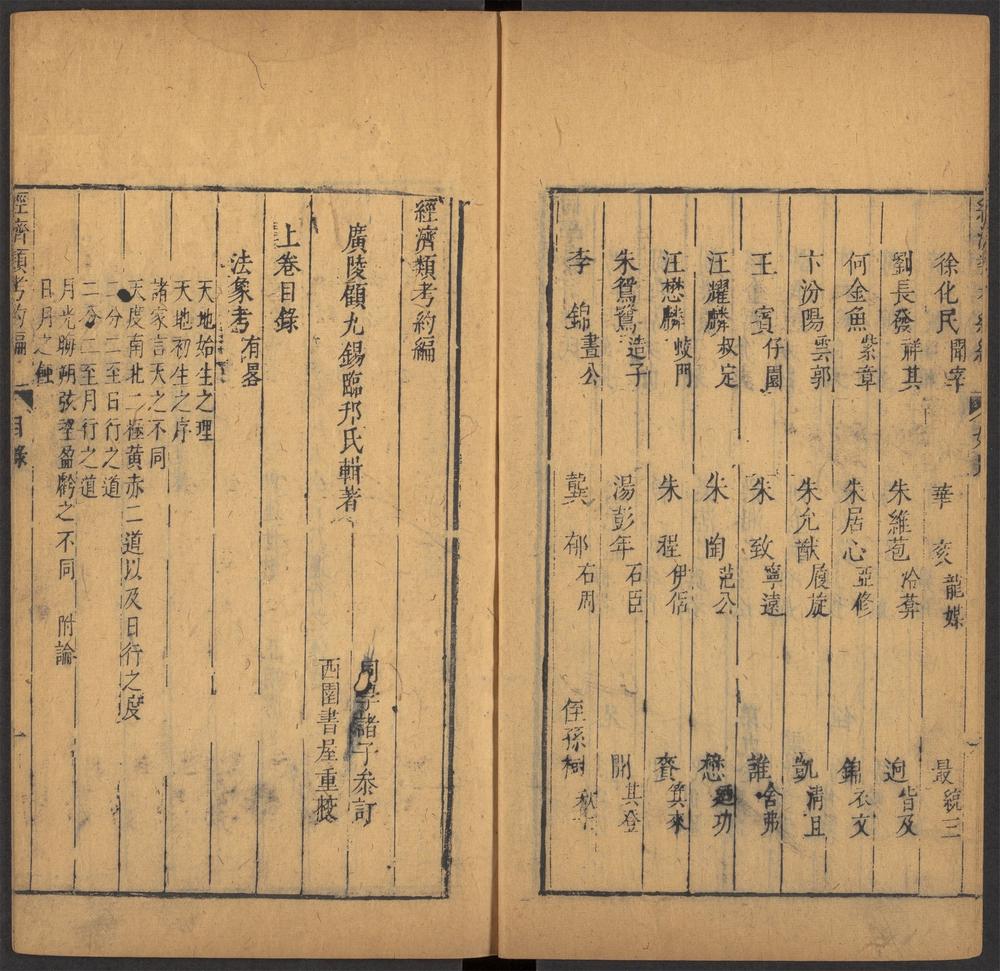 徐化民 聞宰 華 亥 龍媒 最 統三
劉長發 祥其 朱維苞 恰葊 迥 皆及
何金魚 紫章 朱居心 亞修 錦 衣文
卞汾陽 雲郭 朱允猷 履旋 凱 清且
王 賓 仔園 朱 致 寧遠 誰 舍弗
汪耀麟 叔定 朱 陶 范公 懋 廼功
汪懋麟 蛟門 朱 程 伊侶 賚 箕來
朱鴛鷺 造子 湯彭年 石臣 開 其登
李 錦 晝公 龔 郁 右周 侄孫 桐 秋
經濟類考約編
廣陵顧九錫臨邦氏輯著 同學諸子叅訂
西園書屋重挍
上卷目錄
法象考 有畧
天地始生之理
天地初生之序
諸家言天之不同
天度南北二極黄赤二道以及日行之度
二分二至日行之道
二分二至月行之道
月光晦朔弦望盈虧之不同 附論
日月之蝕
經濟類考約編 目錄